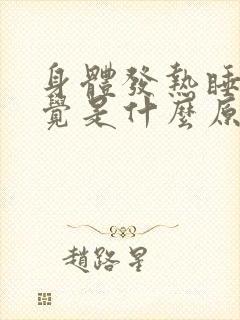 身體發熱睡
覺是什麼原
趙路星